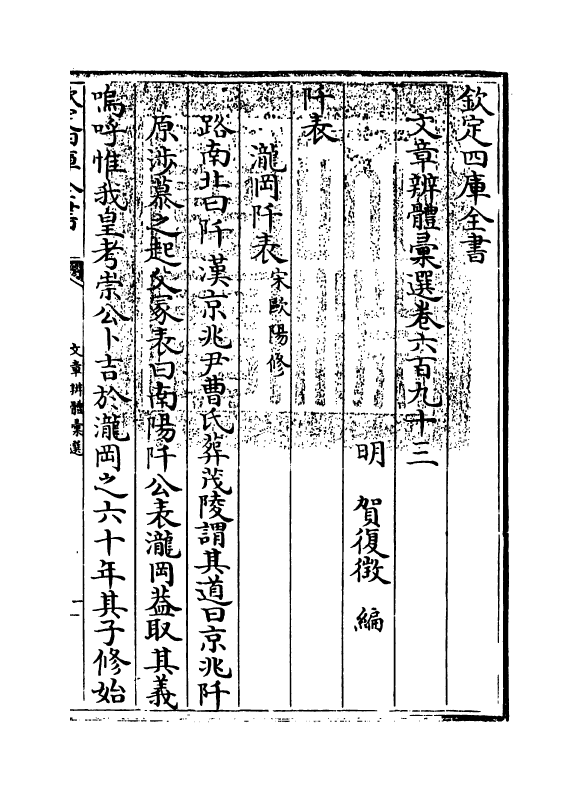 欽定四庫全書
文章辨體彙選卷六百九十三
明 賀復徵 編
阡表
瀧岡阡表 宋歐陽修
路南北曰阡漢京兆尹曹氏葬茂陵謂其道曰京兆阡
原涉慕之起父冢表曰南陽阡公表瀧岡葢取其義
嗚呼惟我皇考崇公卜吉於瀧岡之六十年其子修始
文章辨體彙選
一